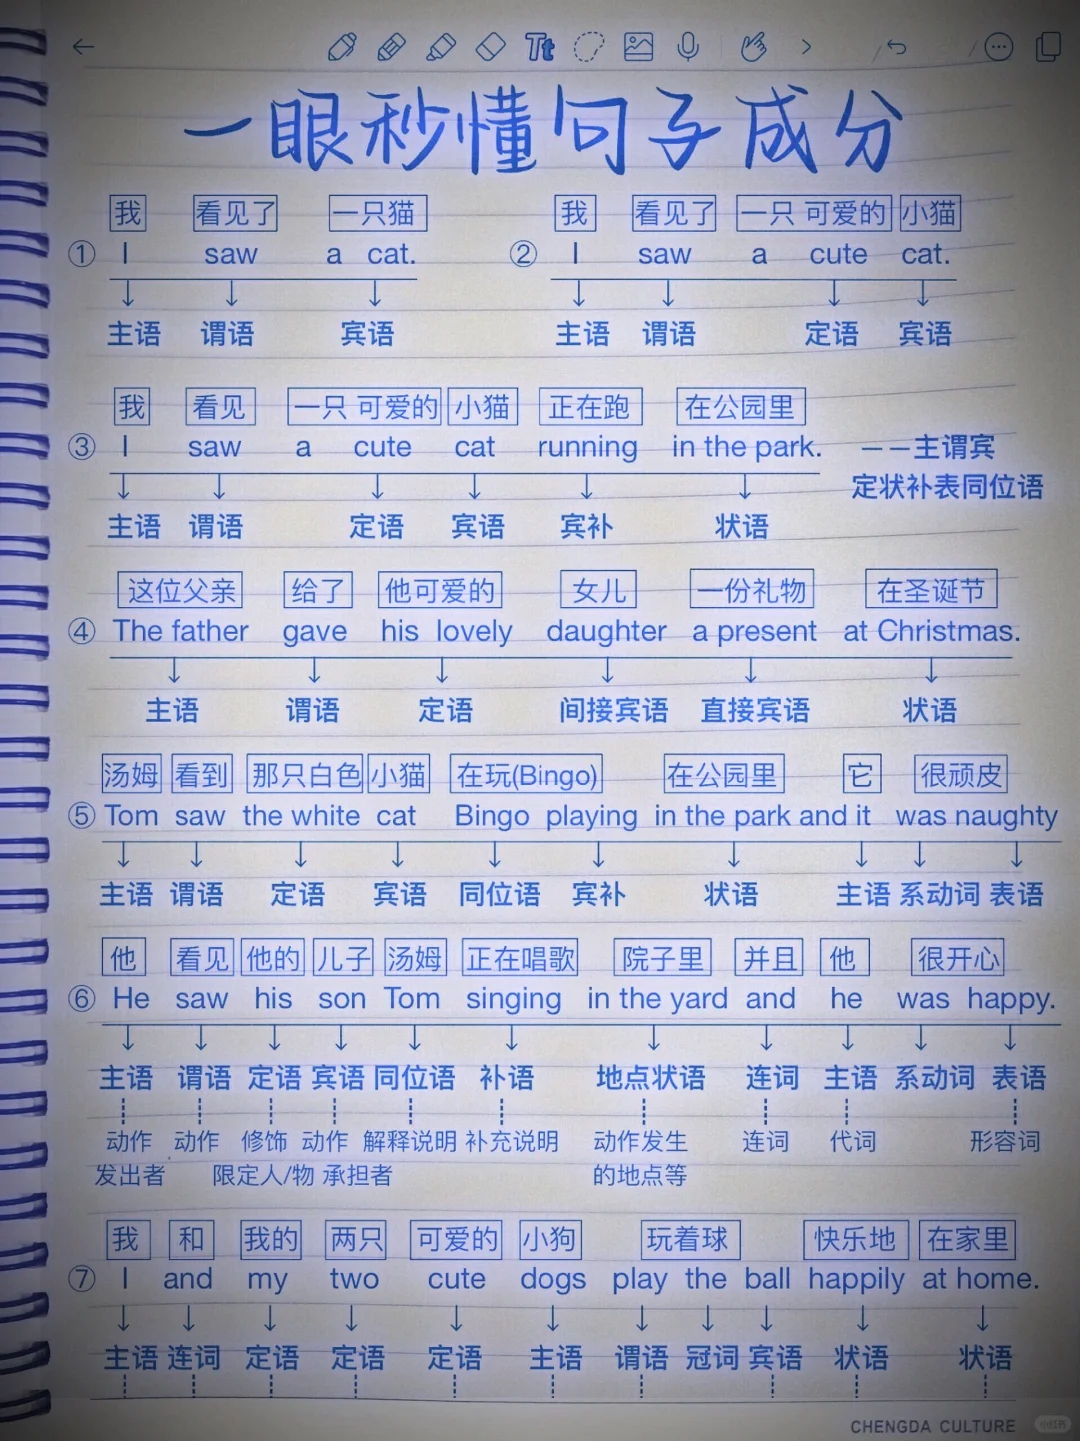 Tt
一眼秒懂句子成分
我 看见了 一只猫 我 看见了 一只 可爱的 小猫
① I saw a cat. ② I saw a cute cat.
主语 谓语 宾语 主语 谓语 定语 宾语
我 看见 一只 可爱的 小猫 正在跑 在公园里
③ I saw a cute cat running in the park. ——主谓宾
定状补表同位语
主语 谓语 定语 宾语 宾补 状语
这位父亲 给了 他可爱的 女儿 一份礼物 在圣诞节
④ The father gave his lovely daughter a present at Christmas.
主语 谓语 定语 间接宾语 直接宾语 状语
汤姆 看到 那只白色 小猫 在玩(Bingo) 在公园里 它 很顽皮
⑤ Tom saw the white cat Bingo playing in the park and it was naughty
主语 谓语 定语 宾语 同位语 宾补 状语 主语 系动词 表语
他 看见 他的 儿子 汤姆 正在唱歌 院子里 并且 他 很开心
⑥ He saw his son Tom singing in the yard and he was happy.
主语 谓语 定语 宾语 同位语 补语 地点状语 连词 主语 系动词 表语
动作 动作 修饰 动作 解释说明 补充说明 动作发生 连词 代词 形容词
发出者 限定人/物 承担者 的地点等
我 和 我的 两只 可爱的 小狗 玩着球 快乐地 在家里
⑦ I and my two cute dogs play the ball happily at home.
主语 连词 定语 定语 定语 主语 谓语 冠词 宾语 状语 状语
CHENGDA CULTURE